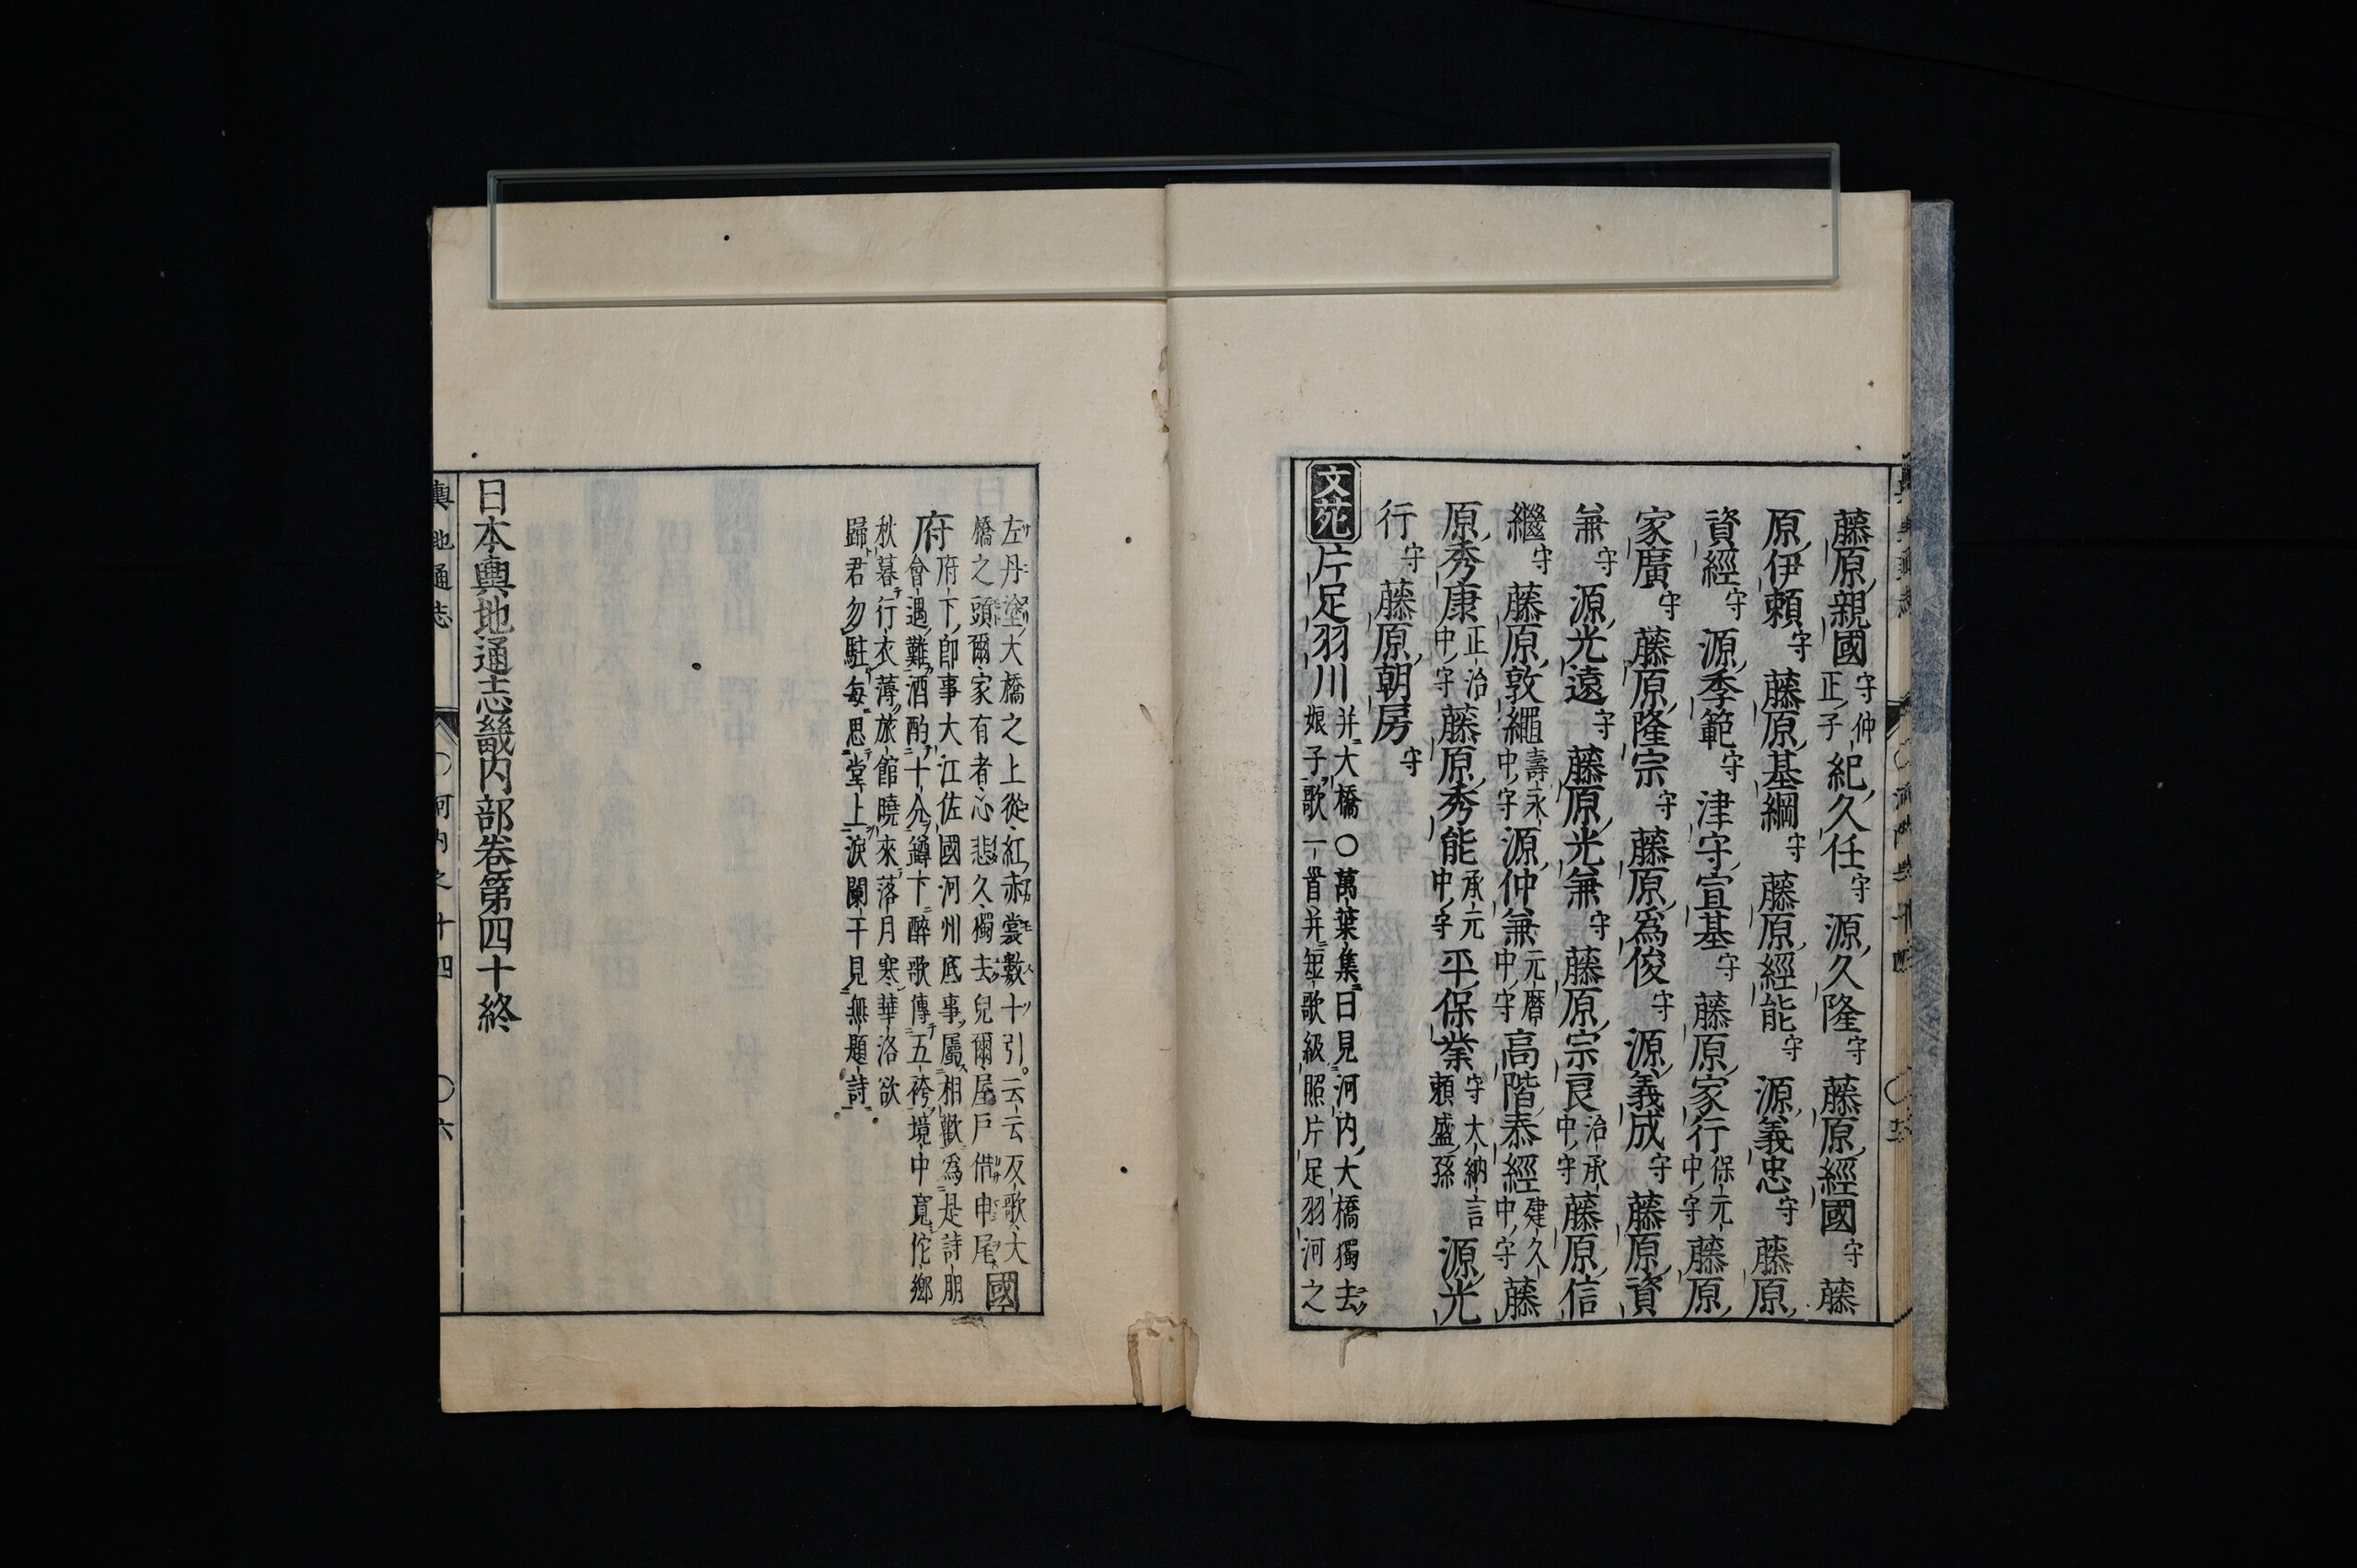 藤原親國守仲正子紀久任守源久隆守藤原經國守藤
原伊賴守藤原基綱守藤原經能守源義忠守藤原
資經守源季範守津守宣基守藤原家行保元中守藤原
家廣守藤原隆宗守藤原爲俊守源義成守藤原資
兼守源光遠守藤原光兼守藤原宗良治承中守藤原信
繼守藤原敦繩壽永中守源仲兼元曆中守高階泰經建久中守藤
原秀康正治中守藤原秀能承元中守平保業守大納言賴盛孫源光
行守藤原朝房守
文苑片足羽川并大橋〇萬葉集曰見河内大橋獨去
娘子歌一首并短歌級照片足羽河之
左丹塗大橋之上從紅赤裳數十引云云反歌大
橋之頭爾家有者心悲久獨去兒爾屋戸借申尾國
府府下卽事大江佐國河州底事屬相歡爲是詩朋
會遇難酒酌十分罇下醉歌傳五袴境中寬佗鄉
秋暮行衣薄旅館曉來落月寒華洛欲
歸君勿駐每思堂上淚闌干見無題詩
日本輿地通志畿内部卷第四十終
輿地通志 〇河内之十四 〇六